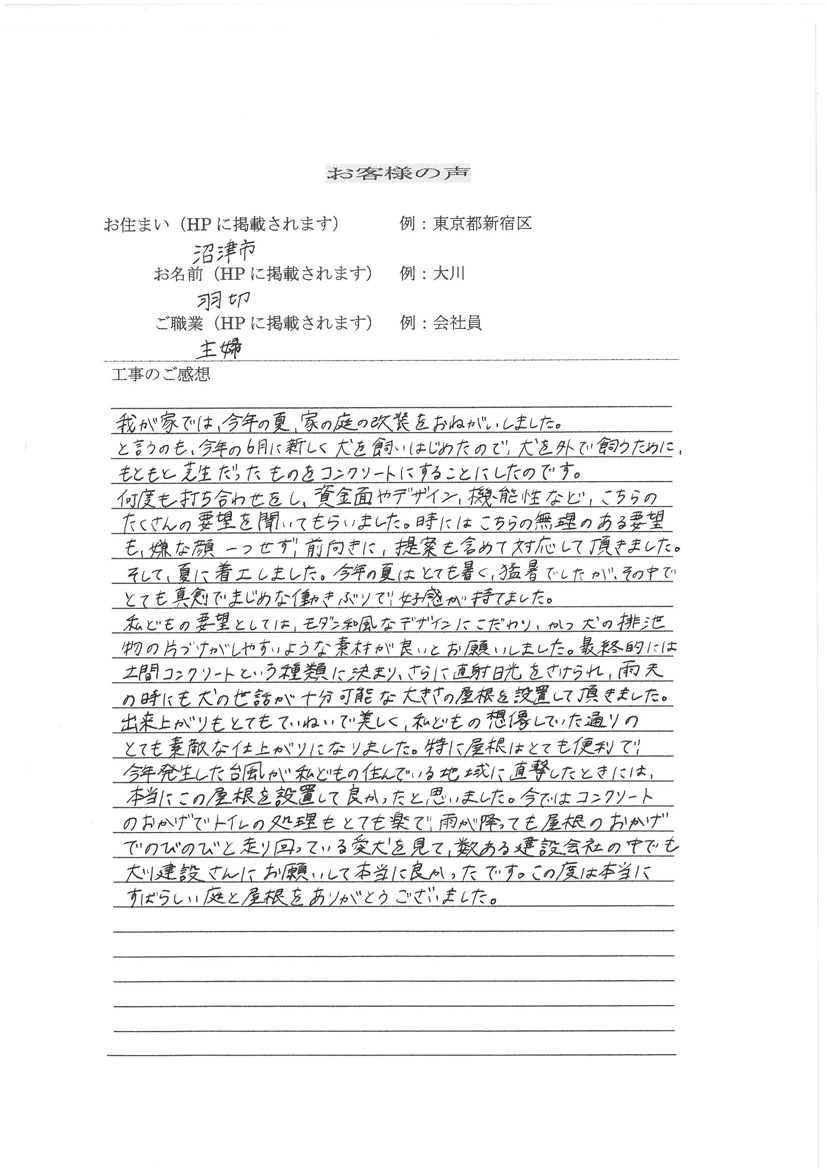 お客様の声
お住まい（HPに掲載されます） 例：東京都新宿区
沼津市
お名前（HPに掲載されます） 例：大川
羽切
ご職業（HPに掲載されます） 例：会社員
主婦
工事のご感想
我が家では、今年の夏、家の庭の改装をおねがいしました。
と言うのも、今年の6月に新しく犬を飼いはじめたので、犬を外で飼うために、
もともと芝生だったものをコンクリートにすることにしたのです。
何度も打ち合わせをし、資金面やデザイン、機能性など、こちらの
たくさんの要望を聞いてもらいました。時にはこちらの無理のある要望
も、嫌な顔一つせず、前向きに、提案も含めて対応して頂きました。
そして、夏に着工しました。今年の夏はとても暑く、猛暑でしたが、その中で
とても真剣でまじめな働きぶりで、好感が持てました。
私どもの要望としては、モダン和風なデザインにこだわり、かつ犬の排泄
物の片づけがしやすいような素材が良いとお願いしました。最終的には
土間コンクリートという種類に決まり、さらに直射日光をさけられ、雨天
の時にも犬の世話が十分可能な大きさの屋根を設置して頂きました。
出来上がりもとてもていねいで美しく、私どもの想像していた通りの
とても素敵な仕上がりになりました。特に屋根はとても便利で、
今年発生した台風が私どもの住んでいる地域に直撃したときには、
本当にこの屋根を設置して良かったと思いました。今ではコンクリート
のおかげでトイレの処理もとても楽で、雨が降っても屋根のおかげ
でのびのびと走り回っている愛犬を見て、数ある建設会社の中でも
大川建設さんにお願いして本当に良かったです。この度は本当に
すばらしい庭と屋根をありがとうございました。